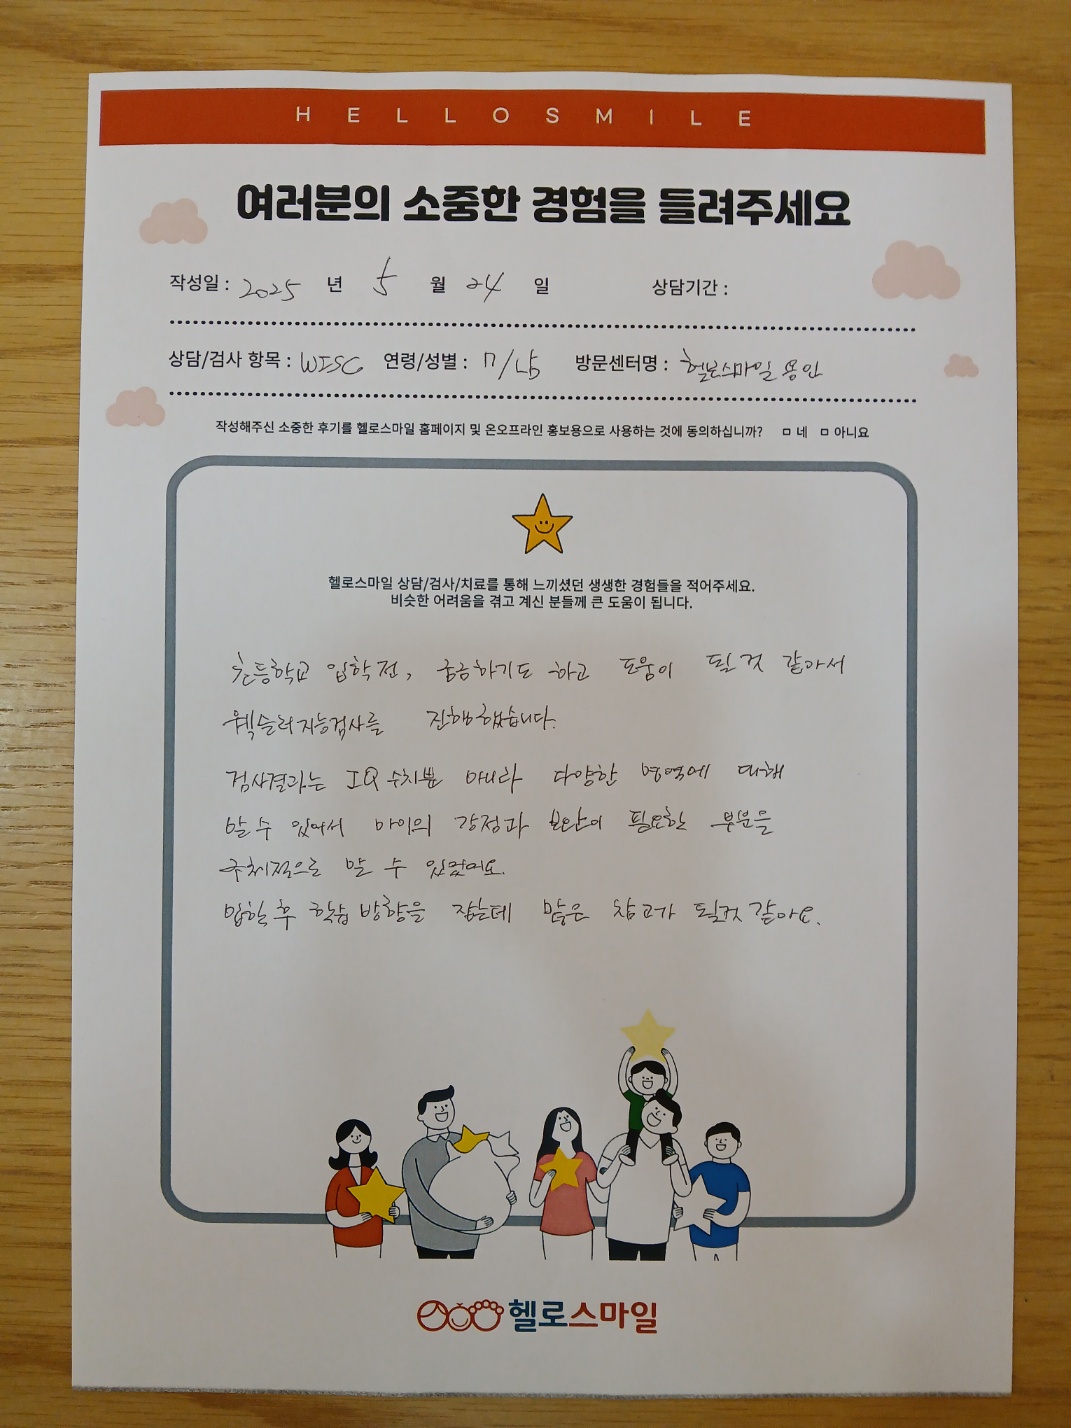 HELLOSMILE
여러분의 소중한 경험을 들려주세요
작성일 : 2025 년 5 월 24 일 상담기간 :
상담/검사 항목 : WISC 연령/성별 : 7/남 방문센터명 : 헬로스마일 용인
작성해주신 소중한 후기를 헬로스마일 홈페이지 및 온오프라인 홍보용으로 사용하는 것에 동의하십니까? ㅁ 네 ㅁ 아니요
헬로스마일 상담/검사/치료를 통해 느끼셨던 생생한 경험들을 적어주세요.
비슷한 어려움을 겪고 계신 분들께 큰 도움이 됩니다.
초등학교 입학 전, 궁금하기도 하고 도움이 될 것 같아서
웩슬러 지능검사를 진행했습니다.
검사결과는 IQ 수치뿐 아니라 다양한 영역에 대해
알 수 있어서 아이의 강점과 보완이 필요한 부분을
구체적으로 알 수 있었어요.
입학 후 학습 방향을 잡는데 많은 참고가 될것 같아요.
헬로스마일